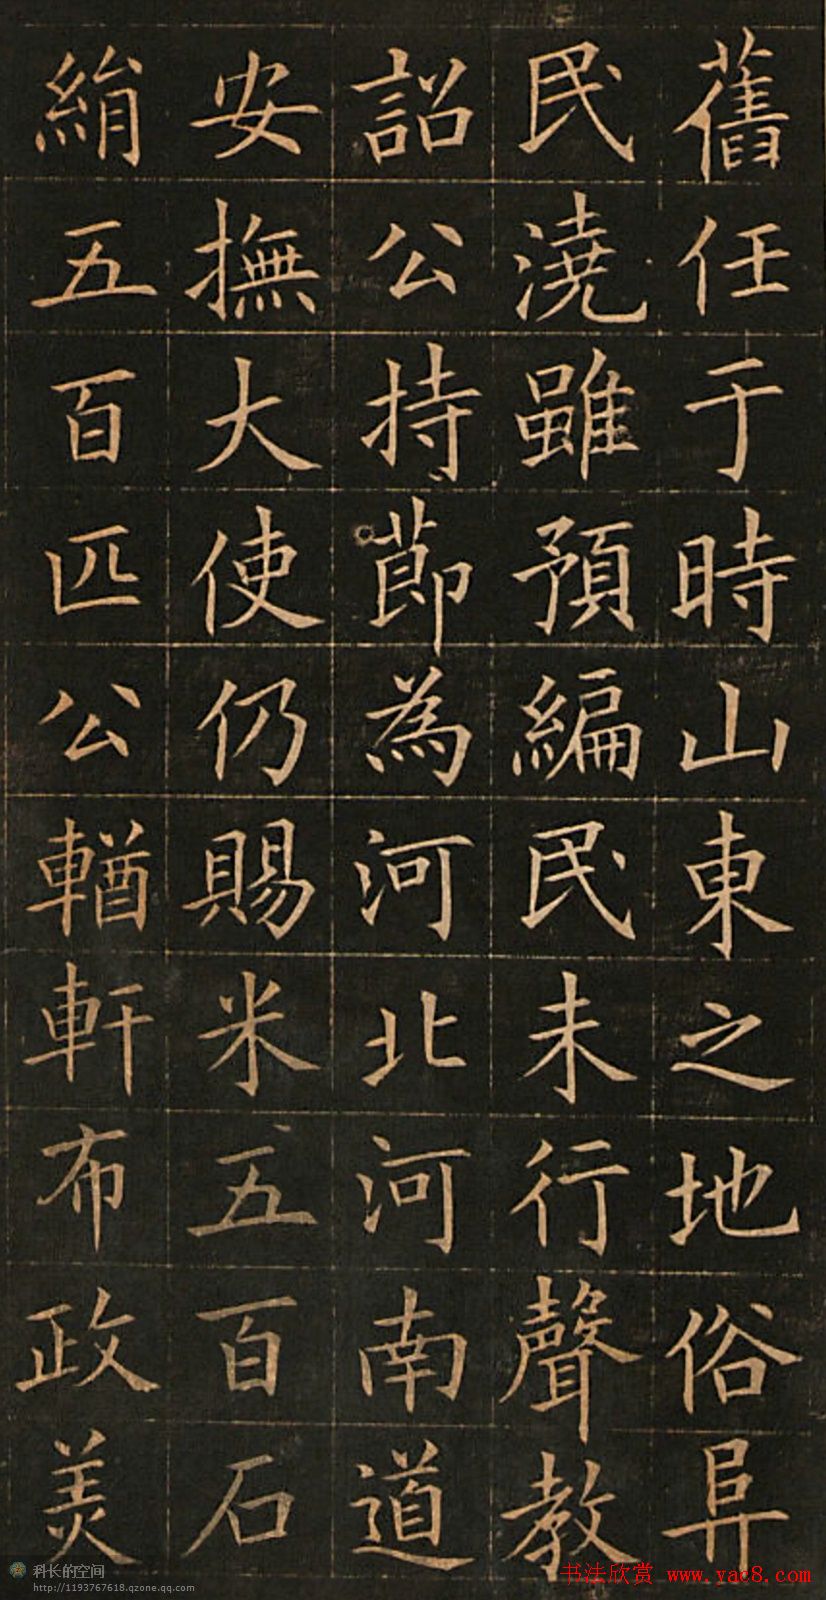 舊任于時山東之地俗阜
民澆雖預編民未行聲教
詔公持莭為河北河南道
安撫大使仍賜米五百石
絹五百匹公輶軒布政美
科长的空间
http://1193767618.qzone.qq.com
书法欣赏 www.yac8.com